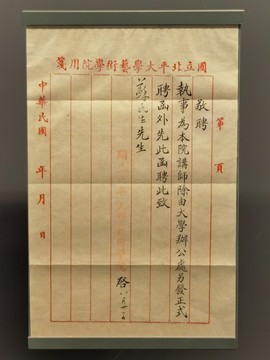 國立北平大學藝術學院用箋
第 頁
敬聘
執事為本院講師除由大學辦公處另發正式
聘函外先此函聘此致
蘇民生先生
啓
中華民國 年 月 日